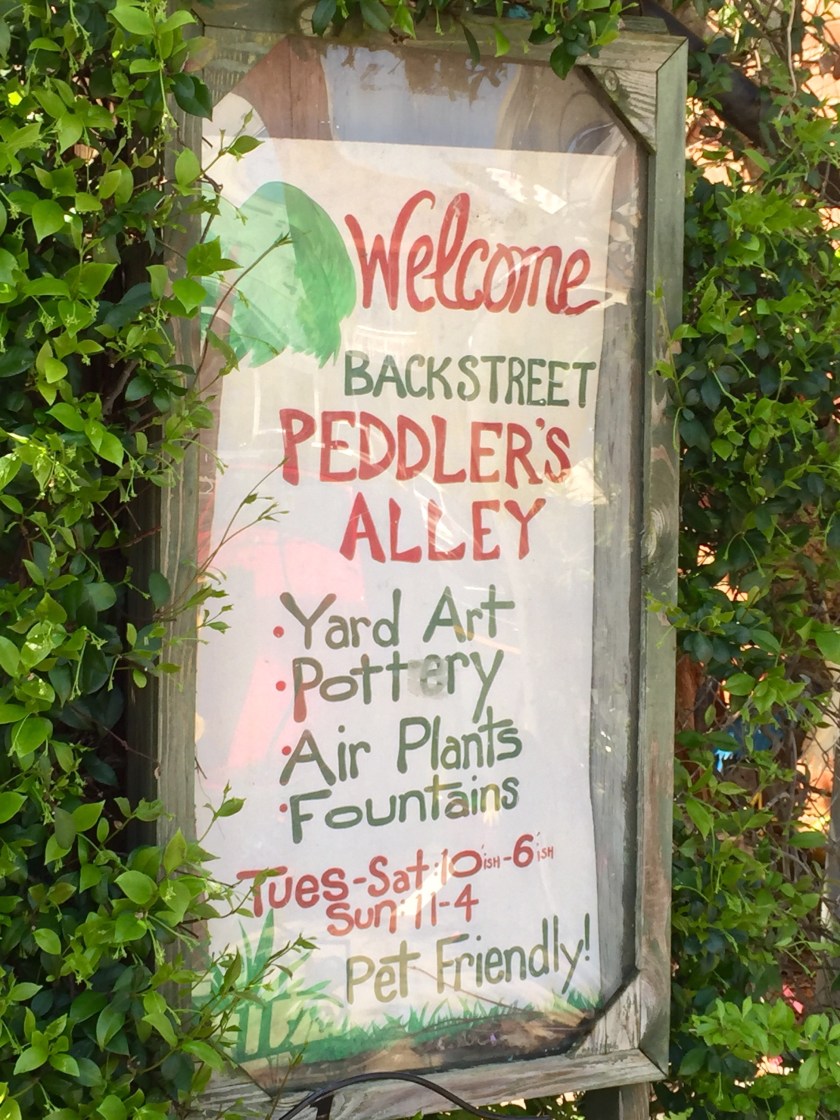 Welcome
BACKSTREET
PEDDLER'S
ALLEY
• Yard Art
• Pottery
• Air Plants
• Fountains
Tues-Sat: 10ISH-6ISH
Sun: 11-4
Pet Friendly!